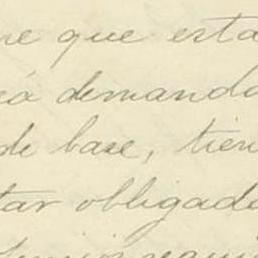 ne que esta
ea demanda
de base, tien
tar obligado